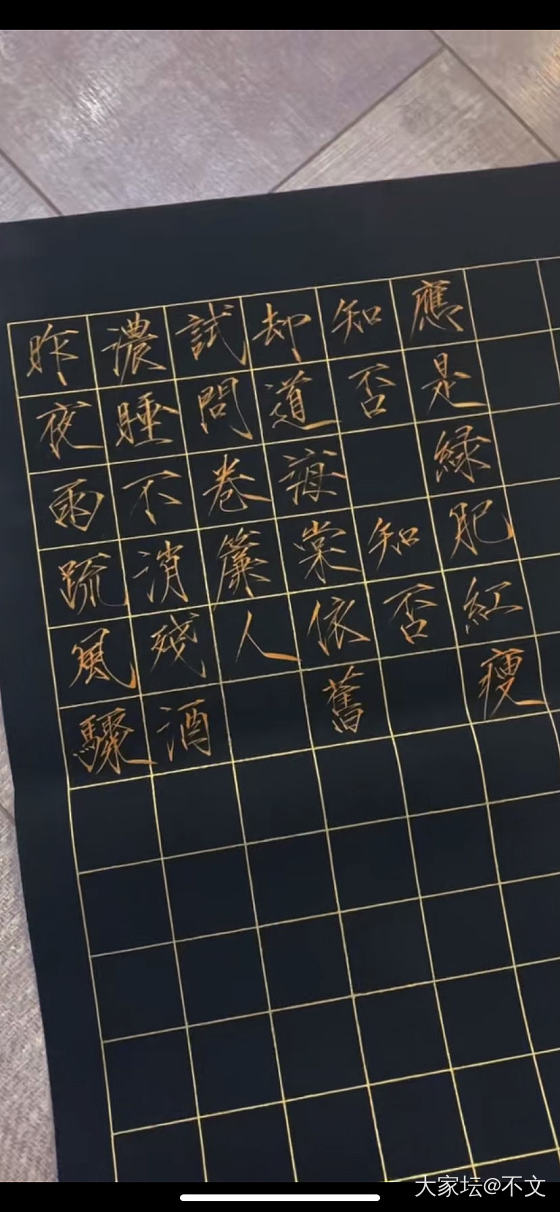 昨夜雨疏風驟
濃睡不消殘酒
試問卷簾人
却道海棠依舊
知否 知否
應是緑肥紅瘦
大家坛@不文